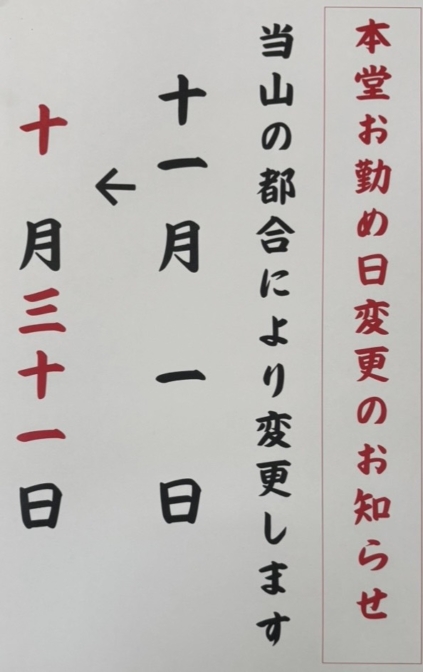 本堂お勤め日変更のお知らせ
当山の都合により変更します
十一月 一 日
←
十 月三十一日